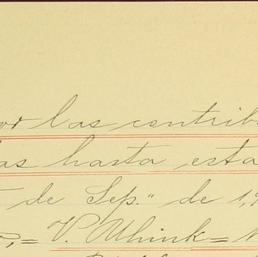 por las contrib
as hasta esta
de Sep." de 1,9
= V. Whink =